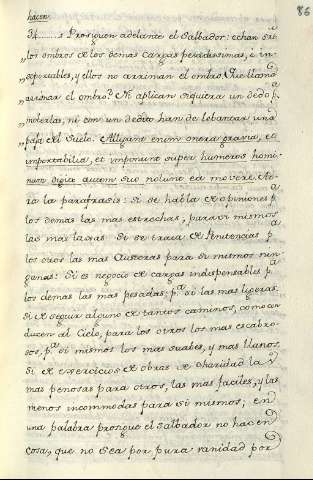 hacen.
86
34. Prosigue adelante el Salbador: echan so
„ los ombros de los demas cargas pesadissimas, è in
„ soportables, y ellos no arriman el ombro. Que llamo
„ arrimar el ombro? Ni aplican siquiera un dedo pª
„ moberlas, ni con un dedito han de lebantar una
„ paja del suelo. Alligant enim onera gravia, et
importabilia, et imponunt super humeros homi
num digito autem suo nolunt ea movere. Aora
la parafrasis: Si se habla de opiniones pª
los demas las mas estrechas, para si mismos
las mas laxas. Si se trata de Penitencias pª
los otros las mas Austeras para si mismos nin
guna: Si es negocio de cargas indispensables pª
los demas las mas pesadas; pª si las mas ligeras.
Si de seguir alguno de tantos caminos, como con
ducen al Cielo, para los otros los mas escabro
sos, pª si mismos los mas suabes, y mas llanos.
Si de exercicios de obras de charidad las
mas penosas para otros, las mas faciles, y las
menos incommodas para si mismos; en
una palabra prosigue el Salbador no hacen
cosa, que no sea por pura vanidad por